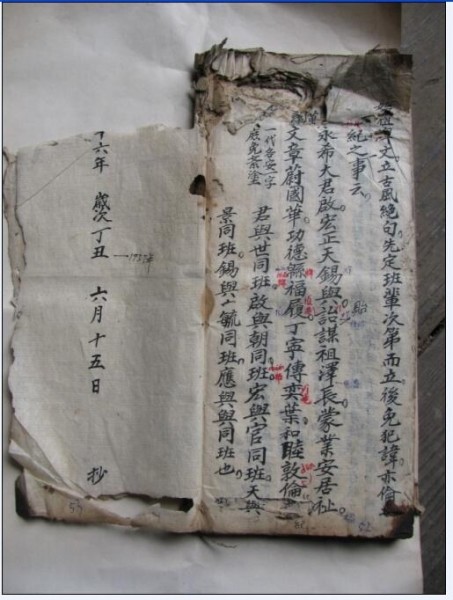 文立古風絶句。先定班輩次第而立。後免犯諱亦倫
紀之事云。
永希大君啟宏正天錫與詒謀祖澤長。蒙業安居祉。
文章蔚國華。功德綿福履丁寧傳奕葉。和睦敦倫
一代多安一字
君與世同班。啟與朝同班。宏與官同班。天與
景同班。錫與毓同班。應與興同班也。
六年 歲次丁丑 1937年 六月十五日 抄